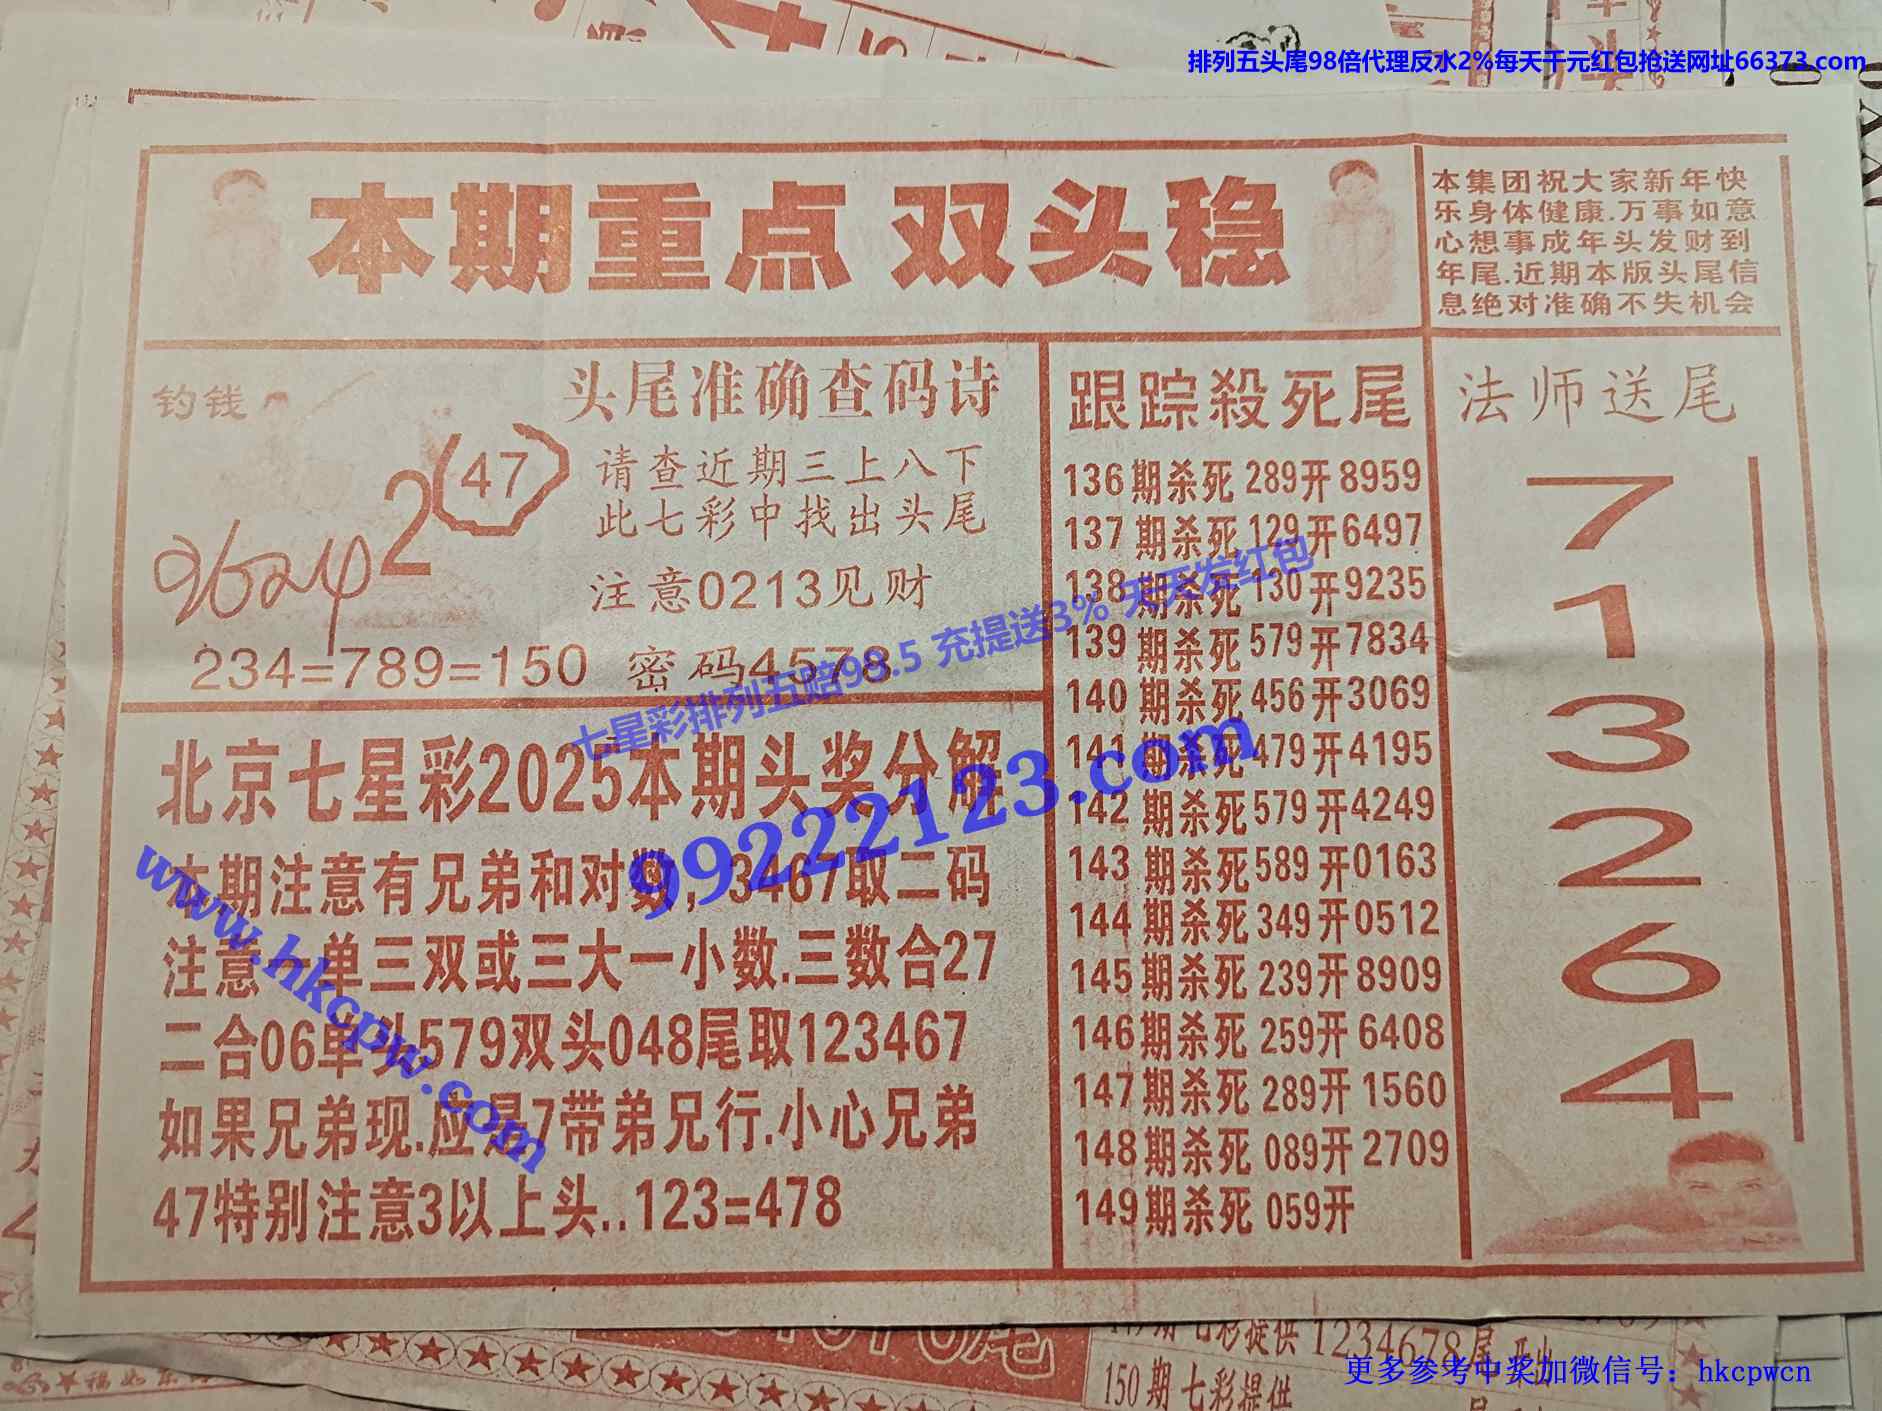 排列五头尾98倍代理反水2%每天千元红包抢送网址66373.com
本期重点 双头稳
本集团祝大家新年快
乐身体健康.万事如意
心想事成年头发财到
年尾.近期本版头尾信
息绝对准确不失机会
钓钱
2(47)
9624
头尾准确查码诗
请查近期三上八下
此七彩中找出头尾
注意0213见财
234=789=150 密码4578
跟踪殺死尾
136期杀死 289开8959
137期杀死 129开6497
138期杀死 130开9235
139期杀死 579开7834
140期杀死 456开3069
141期杀死 479开4195
142期杀死 579开4249
143期杀死 589开0163
144期杀死 349开0512
145期杀死 239开8909
146期杀死 259开6408
147期杀死 289开1560
148期杀死 089开2709
149期杀死 059开
法师送尾
7
1
3
2
6
4
北京七星彩2025本期头奖分解
本期注意有兄弟和对数,3467取二码
注意一单三双或三大一小数.三数合27
二合06单头579双头048尾取123467
如果兄弟现.应是7带弟兄行.小心兄弟
47特别注意3以上头..123=478
七星彩排列五赔98.5 充提送3% 天天发红包
99222123.com
www.hkcpw.com
七彩提供 1234678尾
150期 七彩提供
更多参考中奖加微信号：hkcpwcn